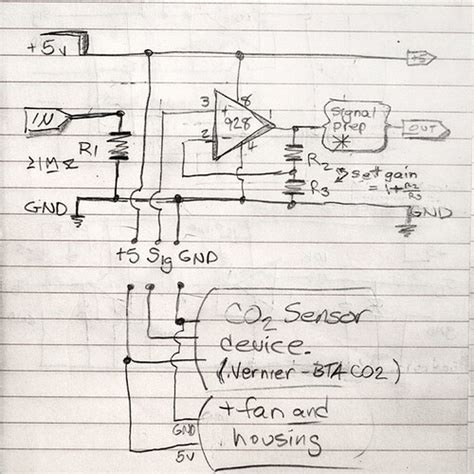 +5V
+5
8
3
+
928
1
2
-
4
IN
R1
≥1MΩ
Signal
prep
*
OUT
R2
R3
* set gain
= 1+ R2/R3
GND
GND
+5 Sig GND
CO2 Sensor
device.
(Vernier-BTA CO2)
+fan and
housing
GND
5V